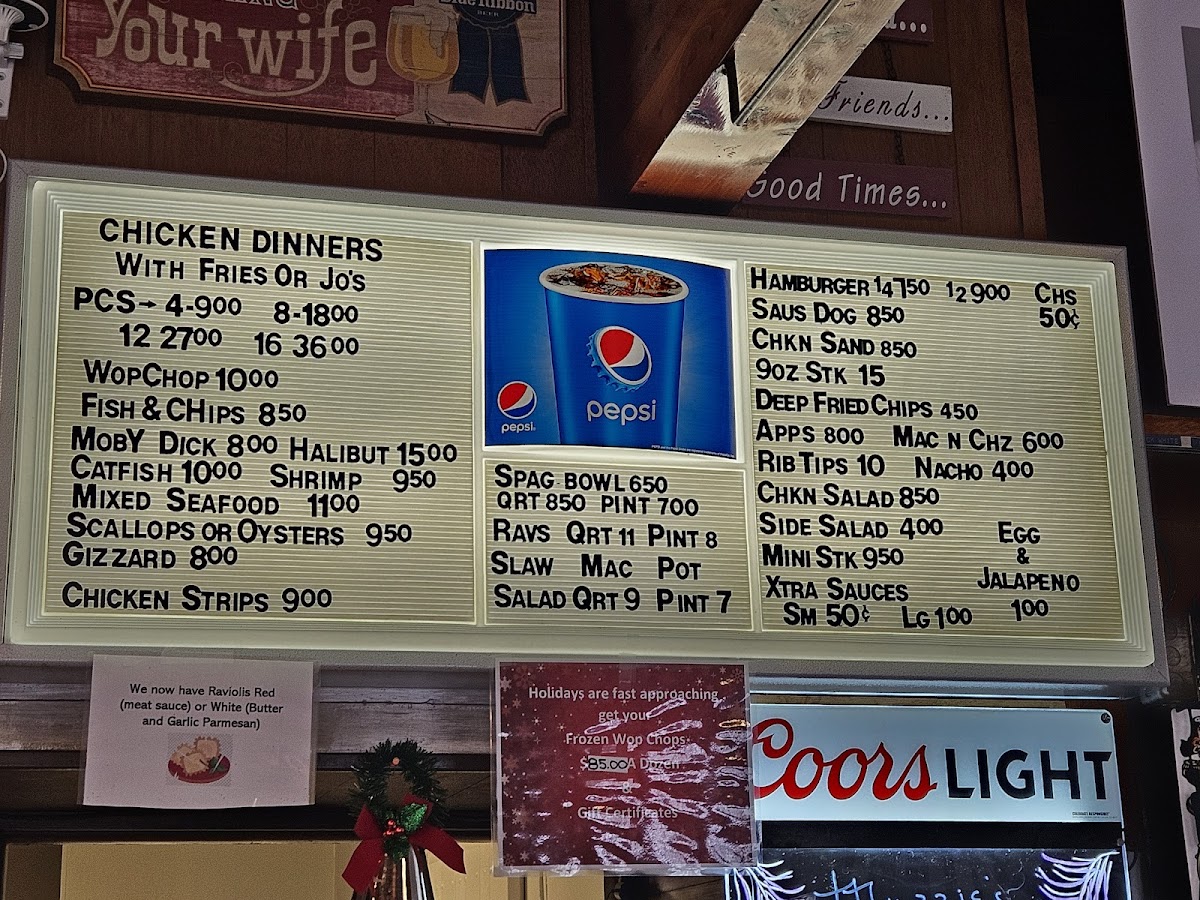 Your wife
Blue Ribbon
BEER
Friends...
Good Times...
CHICKEN DINNERS
WITH FRIES OR JO'S
PCS→ 4-900 8-1800
12 2700 16 3600
WOPCHOP 1000
FISH & CHIPS 850
MOBY DICK 800 HALIBUT 1500
CATFISH 1000 SHRIMP 950
MIXED SEAFOOD 1100
SCALLOPS OR OYSTERS 950
GIZZARD 800
CHICKEN STRIPS 900
pepsi
pepsi
SPAG BOWL 650
QRT 850 PINT 700
RAVS QRT 11 PINT 8
SLAW MAC POT
SALAD QRT 9 PINT 7
HAMBURGER 1/4 750 1/2 900 CHS
50¢
SAUS DOG 850
CHKN SAND 850
9OZ STK 15
DEEP FRIED CHIPS 450
APPS 800 MAC N CHZ 600
RIB TIPS 10 NACHO 400
CHKN SALAD 850
SIDE SALAD 400
MINI STK 950
XTRA SAUCES
SM 50¢ LG 100
EGG
&
JALAPENO
100
We now have Raviolis Red
(meat sauce) or White (Butter
and Garlic Parmesan)
Holidays are fast approaching
get your
Frozen Wop Chops
$85.00 A Dozen
&
Gift Certificates
Coors LIGHT